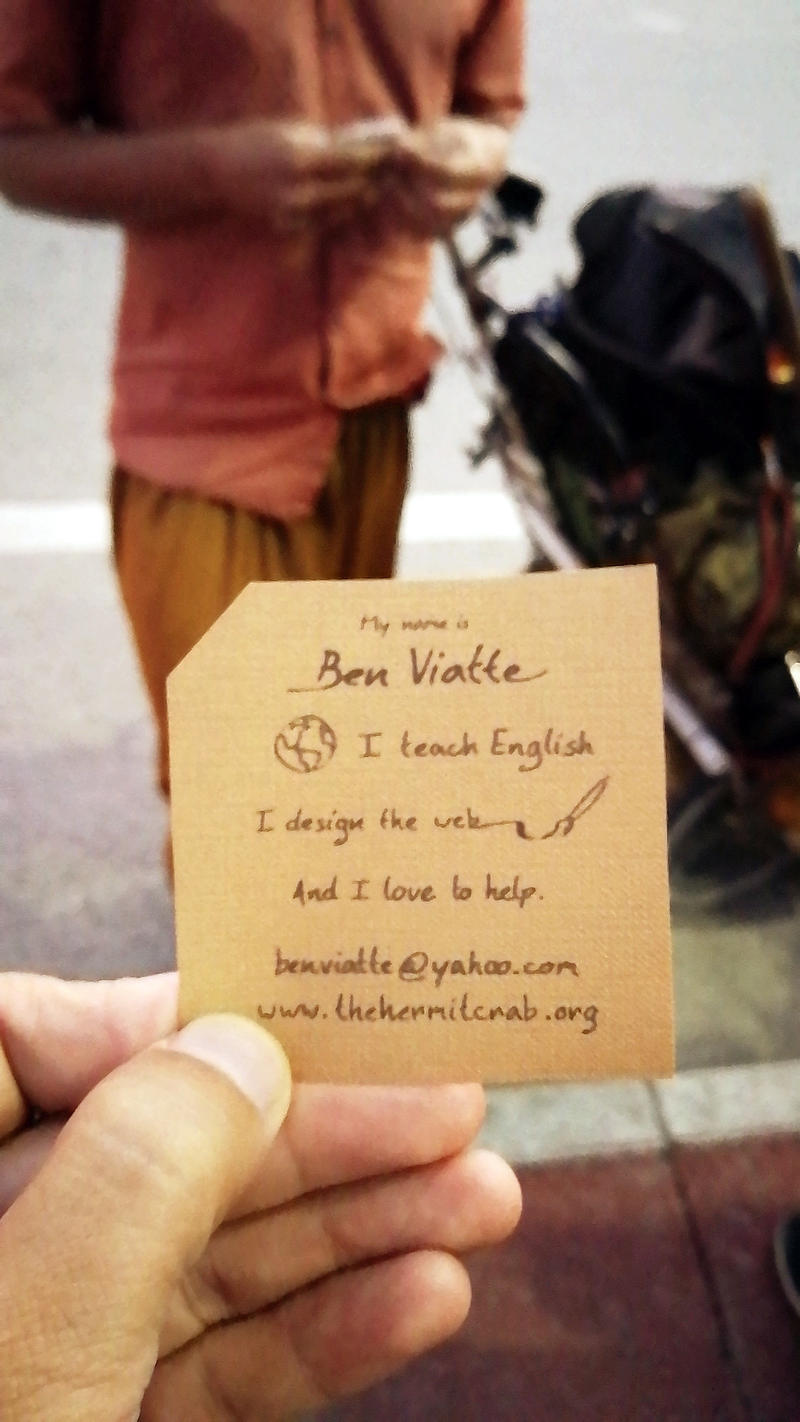 My name is
Ben Viatte
I teach English
I design the web
And I love to help.
benviatte@yahoo.com
www.thehermitcrab.org